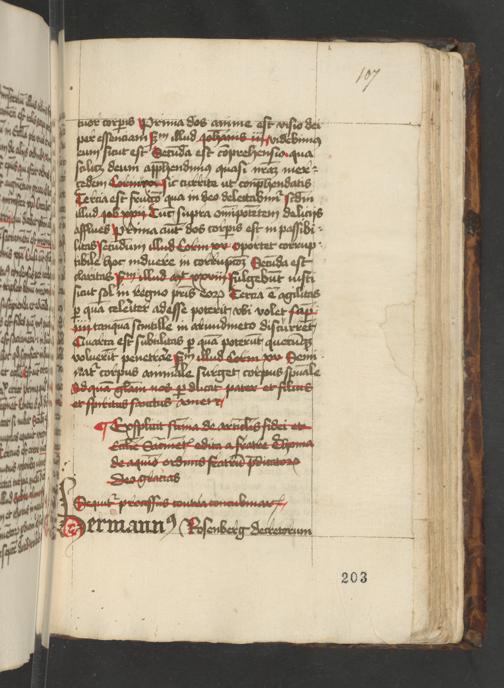 107
tuor corpis Prima dos anime est visio dei
per essenciam Scdm illud Johanis iii videbimus
eum sicuti est Secuda est comprehensio qua
scilicet deum apphendimus quasi nram mer-
cedem Corinth Sic currite ut comphendatis
Tercia est fruicio qua in deo delectabimur Scdm
illud Job xxii Tuc supra omnipotentem deliciis
afflues Prima aut dos corpis est inpassibi-
litas Secundum illud Corin xv oportet corrup-
tibile hoc induere incorrupcoem Secuda est
claritas Scdm illud mt xiii fulgebunt iusti
sicut sol in regno pris eorum Tercia est agilitas
p qua celeriter adesse poterit ubi volet sap
iii tanquam scintille in arundineto discurrent
Quarta est subtilitas p qua poterunt quecumque
voluerit penetrare Scdm illud Corin xv Semi-
nat corpus animale surget corpus spuale
Ad quam gliam nos p ducat pater et filius
et spiritus sanctus Amen
Explicit suma de articulis fidei et
Ecclie Sacmentis edita a fratre Thoma
de aquino ordinis fratrum pdicatorum
deo gracias
Sequitur processus contra concubinarios
Hermannus Rosenberg decretorum
203